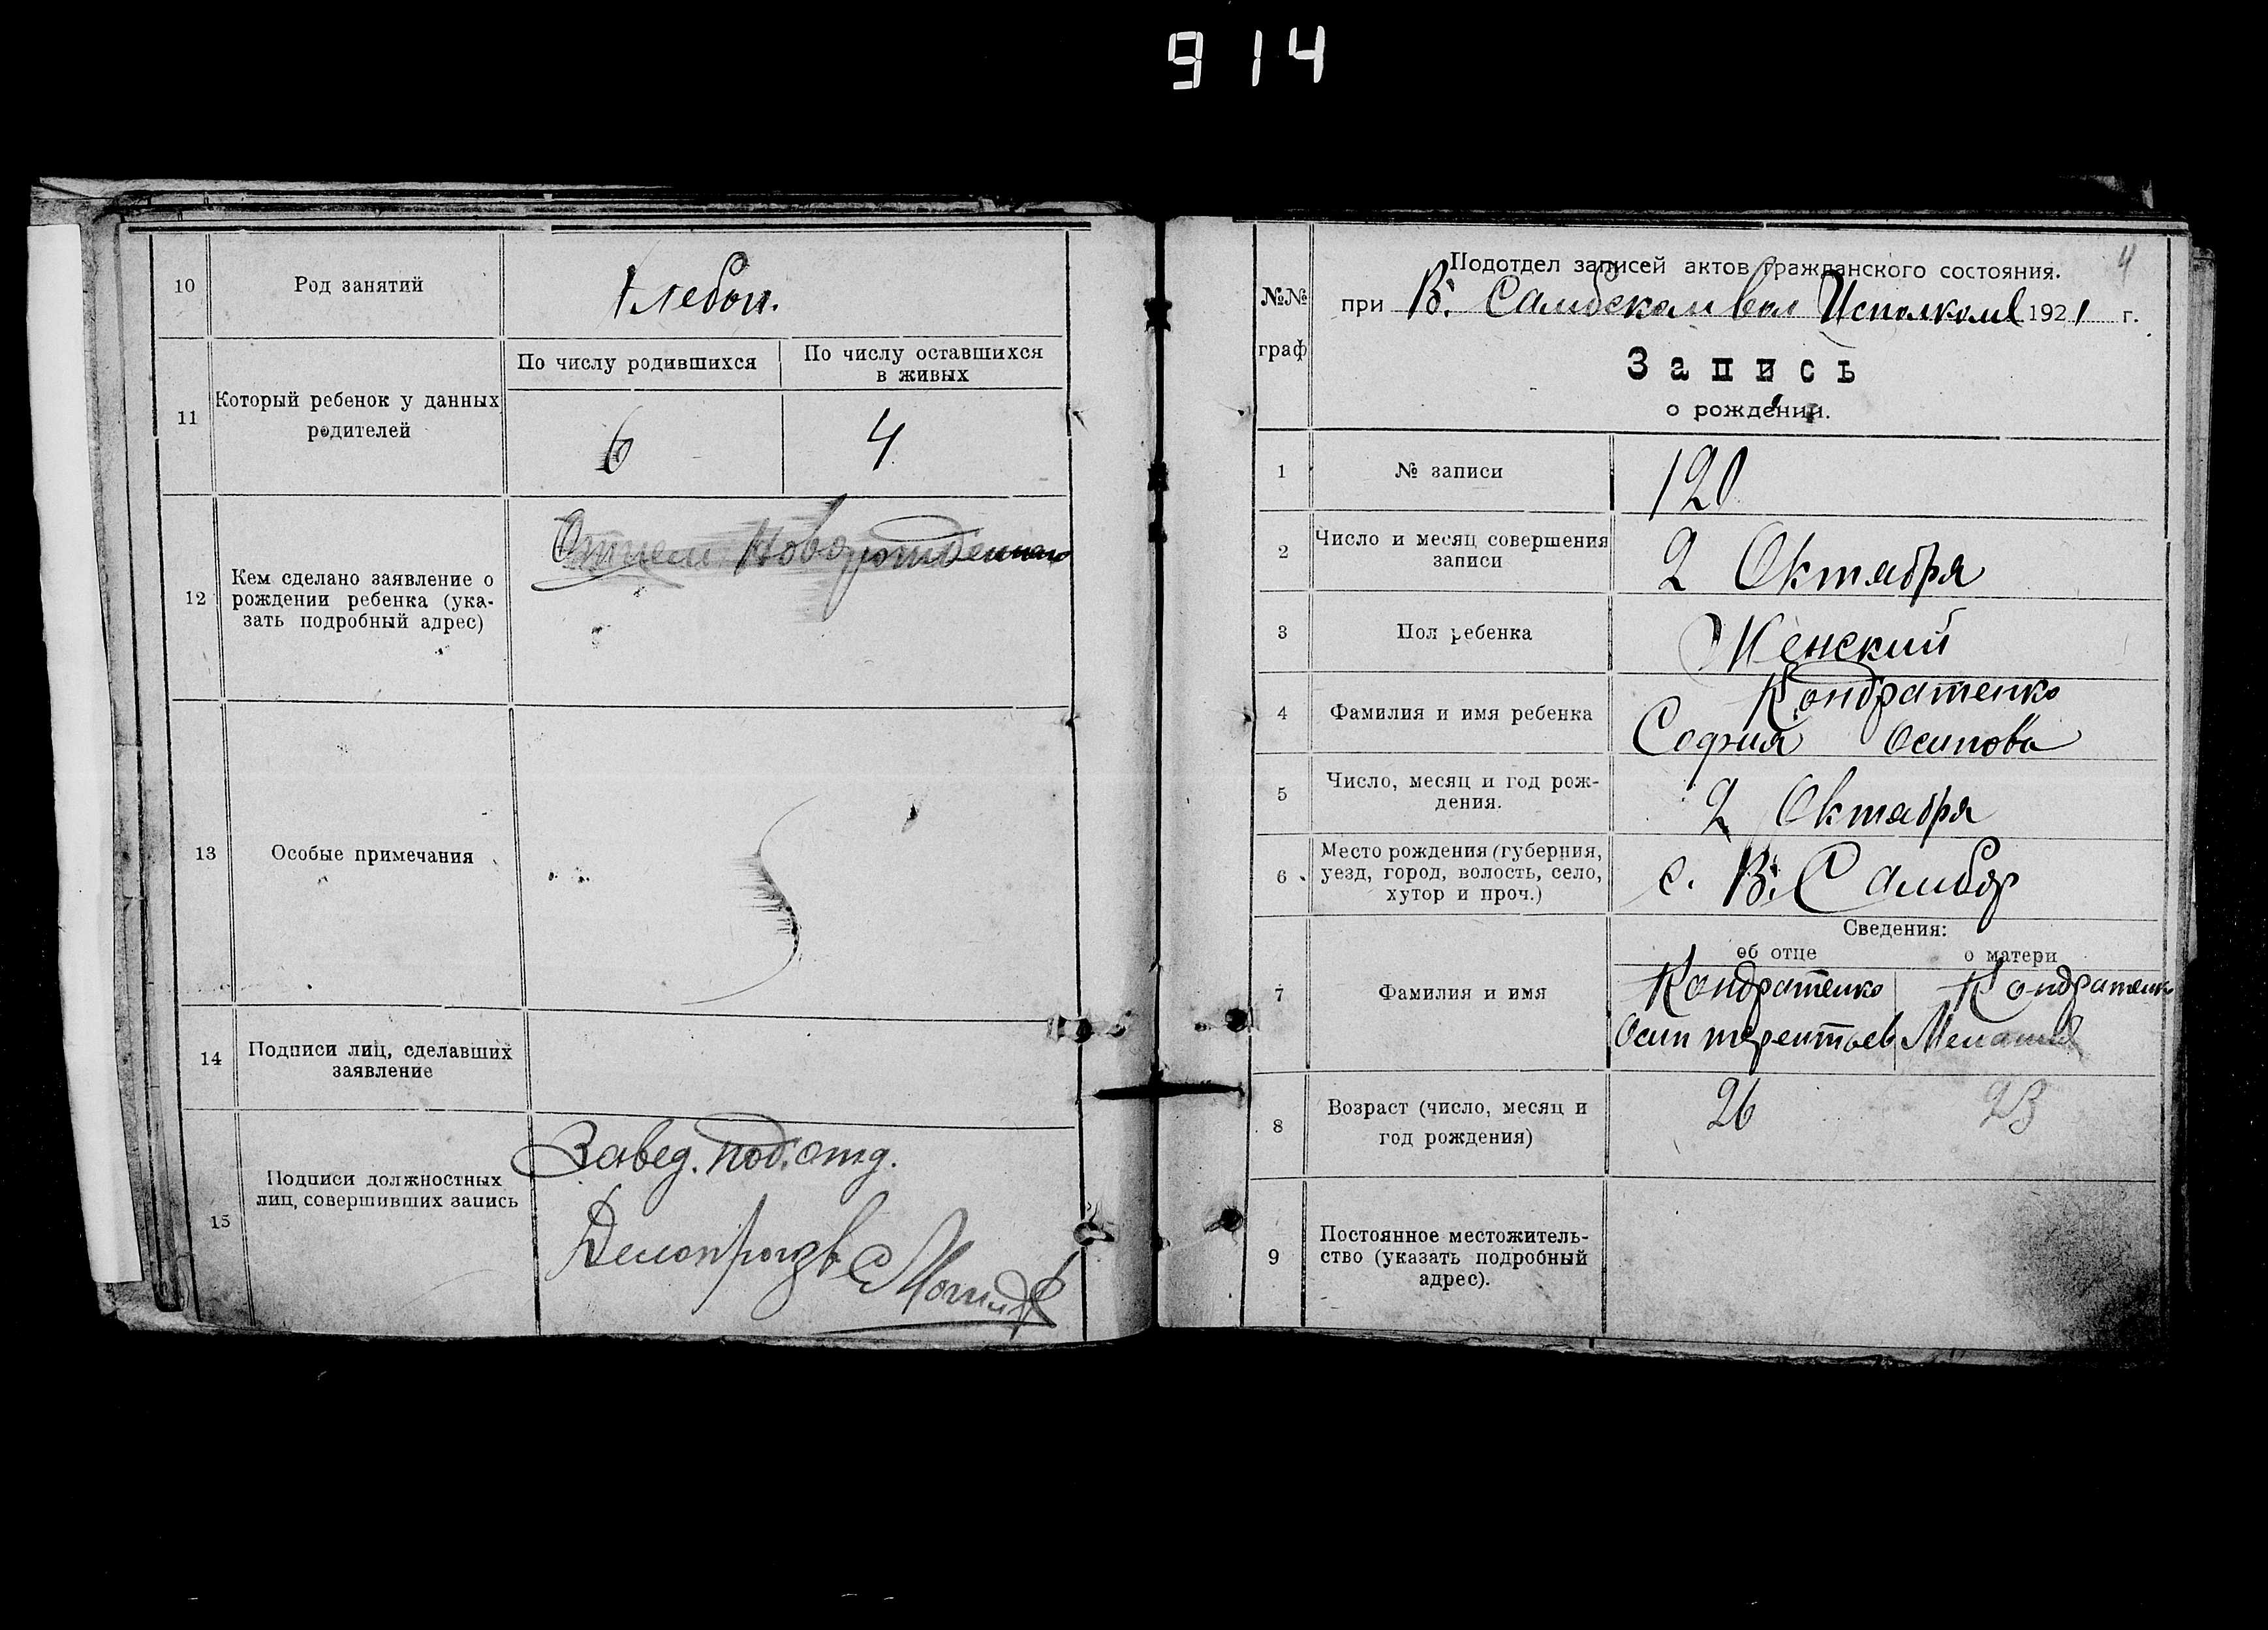 914
10
Род занятий
Хлебоп.
11
Который ребенок у данных
родителей
По числу родившихся
По числу оставшихся
в живых
6
4
12
Кем сделано заявление о
рождении ребенка (ука-
зать подробный адрес)
Отцем Новорожденнаго
13
Особые примечания
14
Подписи лиц, сделавших
заявление
15
Подписи должностных
лиц, совершивших запись
Завед. под. отд.
Делопроизв
4
№№
граф
Подотдел записей актов гражданского состояния.
при В. Самбском вол Исполкоме 1921 г.
Запись
о рождении.
1
№ записи
120
2
Число и месяц совершения
записи
2 Октября
3
Пол ребенка
Женский
4
Фамилия и имя ребенка
Кондратенко
София Осипова
5
Число, месяц и год рож-
дения.
2 Октября
6
Место рождения (губерния,
уезд, город, волость, село,
хутор и проч.)
с. В. Самбор
Сведения:
об отце
о матери
7
Фамилия и имя
Кондратенко
Осип терентьев
Кондратенк
8
Возраст (число, месяц и
год рождения)
26
23
9
Постоянное местожитель-
ство (указать подробный
адрес).